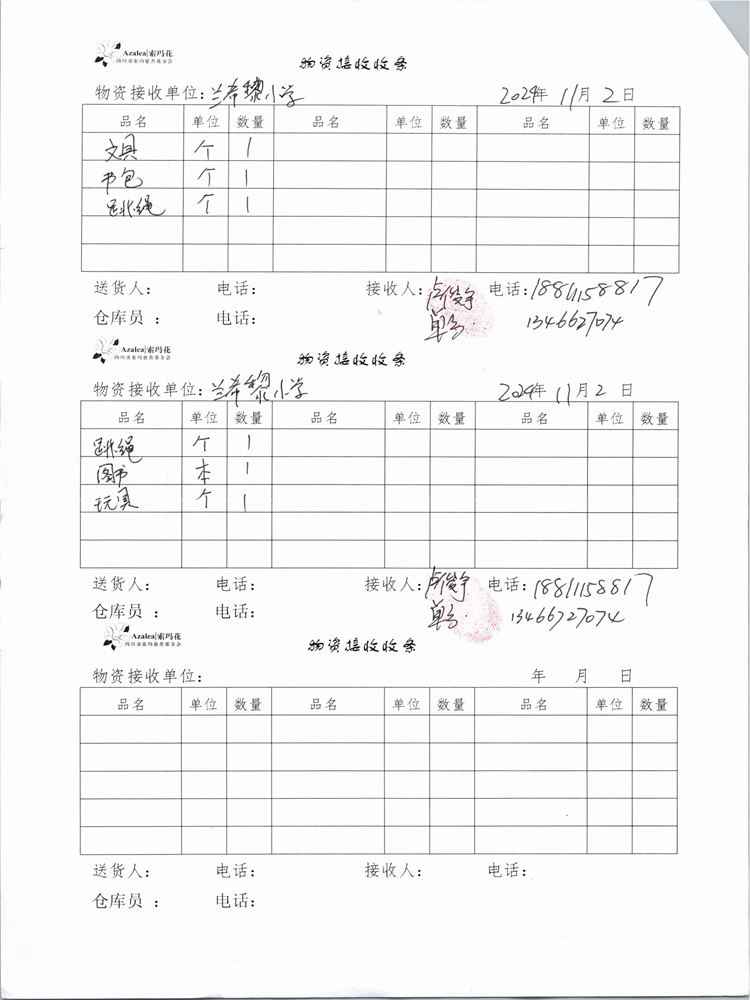 Azalea|索玛花
四川省索玛慈善基金会
物资接收收条
物资接收单位:兰希黎小学 2024年 11月 2日
品名 单位 数量 品名 单位 数量 品名 单位 数量
文具 个 1
书包 个 1
跳绳 个 1
送货人: 电话: 接收人: 电话:18811158817
仓库员 : 电话: 13466727074
Azalea|索玛花
四川省索玛慈善基金会
物资接收收条
物资接收单位:兰希黎小学 2024年 11月 2日
品名 单位 数量 品名 单位 数量 品名 单位 数量
跳绳 个 1
图书 本 1
玩具 个 1
送货人: 电话: 接收人: 电话:18811158817
仓库员 : 电话: 13466727074
Azalea|索玛花
四川省索玛慈善基金会
物资接收收条
物资接收单位: 年 月 日
品名 单位 数量 品名 单位 数量 品名 单位 数量
送货人: 电话: 接收人: 电话:
仓库员 : 电话: